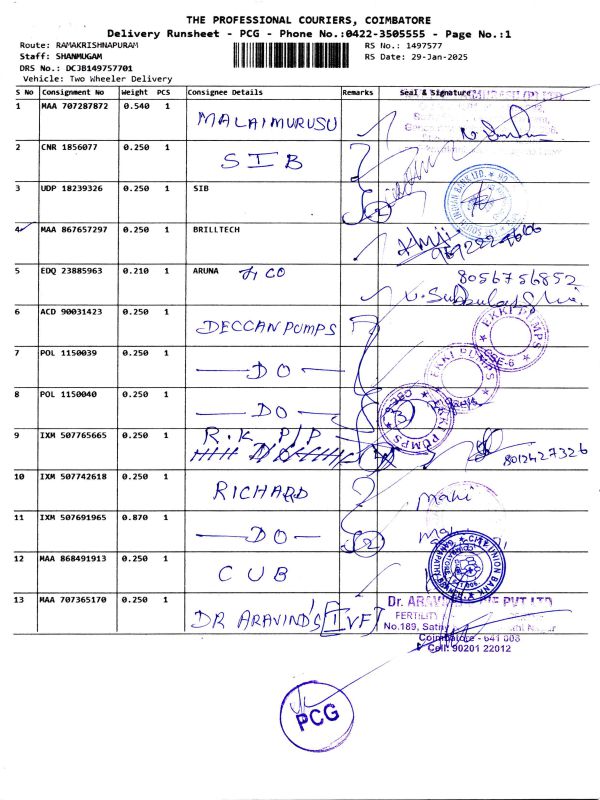 THE PROFESSIONAL COURIERS, COIMBATORE
Delivery Runsheet - PCG - Phone No.:0422-3505555 - Page No.:1
Route: RAMAKRISHNAPURAM RS No.: 1497577
Staff: SHANMUGAM RS Date: 29-Jan-2025
DRS No.: DCJB149757701
Vehicle: Two Wheeler Delivery
S No Consignment No Weight PCS Consignee Details Remarks Seal & Signature
1 MAA 707287872 0.540 1 MALAIMURUSU
2 CNR 1856077 0.250 1 SIB
3 UDP 18239326 0.250 1 SIB 2
4 MAA 867657297 0.250 1 BRILLTECH
5 EDQ 23885963 0.210 1 ARUNA & CO 8056756852
6 ACD 90031423 0.250 1 DECCAN PUMPS
EKKI PUMPS CBE-6
7 POL 1150039 0.250 1 DO
EKKI PUMPS
8 POL 1150040 0.250 1 DO 3
EKKI PUMPS CBE-6
9 IXM 507765665 0.250 1 R.K P/P 8012427326
10 IXM 507742618 0.250 1 RICHARD Mahi
11 IXM 507691965 0.870 1 DO 2
12 MAA 868491913 0.250 1 CUB
CITY UNION BANK
13 MAA 707365170 0.250 1 DR ARAVIND'S [IVF]
Dr. ARAVIND PVT LTD
FERTILITY
No.189, Sathy
Coimbatore - 641 006
Cell: 90201 22012
PCG